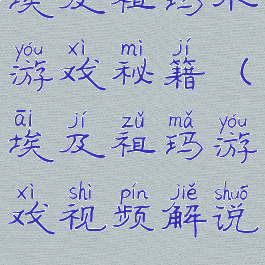 埃及祖玛
yóu xì mì jí
游戏秘籍（
āi jí zǔ mǎ yóu
埃及祖玛游
xì shì pín jiě shuō
戏视频解说